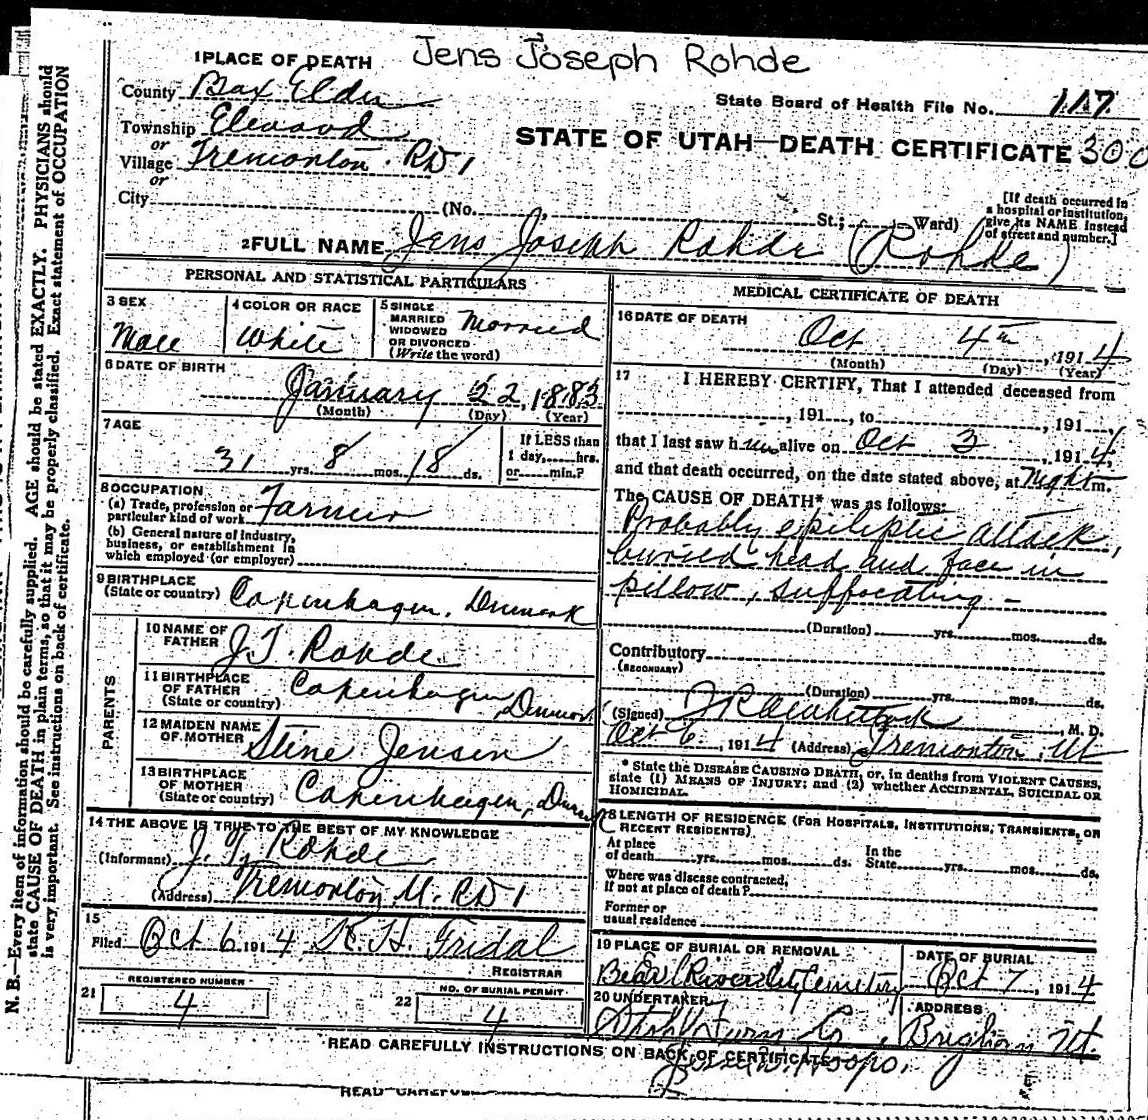 Jens Joseph Rohde
1 PLACE OF DEATH
County Box Elder
State Board of Health File No. 117
Township Elwood
or
STATE OF UTAH—DEATH CERTIFICATE 300
Village Tremonton. RD 1
or
City (No. , St.; Ward)
[If death occurred in
a hospital or institution,
give its NAME instead
of street and number.]
2 FULL NAME Jens Joseph Rohde (Rohde)
PERSONAL AND STATISTICAL PARTICULARS
3 SEX
Male
4 COLOR OR RACE
White
5 SINGLE
MARRIED
WIDOWED
OR DIVORCED
(Write the word)
Married
6 DATE OF BIRTH
January 22, 1883
(Month) (Day) (Year)
7 AGE
31 yrs. 8 mos. 18 ds.
If LESS than
1 day, hrs.
or min.?
8 OCCUPATION
(a) Trade, profession or
particular kind of work Farmer
(b) General nature of industry,
business, or establishment in
which employed (or employer)
9 BIRTHPLACE
(State or country) Copenhagen, Denmark
PARENTS
10 NAME OF
FATHER J.T. Rohde
11 BIRTHPLACE
OF FATHER
(State or country) Copenhagen, Denmark
12 MAIDEN NAME
OF MOTHER Stine Jensen
13 BIRTHPLACE
OF MOTHER
(State or country) Copenhagen,
14 THE ABOVE IS TRUE TO THE BEST OF MY KNOWLEDGE
(Informant) J. T. Rohde
(Address) Tremonton U. RD 1
15
Filed Oct 6 1914 K. H. Fridal
REGISTRAR
21 REGISTERED NUMBER
4
22 NO. OF BURIAL PERMIT
4
MEDICAL CERTIFICATE OF DEATH
16 DATE OF DEATH
Oct 4th, 1914
(Month) (Day) (Year)
17 I HEREBY CERTIFY, That I attended deceased from
, 191 , to , 191 ,
that I last saw him alive on Oct 3, 1914,
and that death occurred, on the date stated above, at Night m.
The CAUSE OF DEATH* was as follows:
Probably epileptic attack,
buried head and face in
pillow, suffocating -
(Duration) yrs. mos. ds.
Contributory
(SECONDARY)
(Duration) yrs. mos. ds.
(Signed) M. D.
Oct 6, 1914 (Address) Tremonton, Ut
* State the DISEASE CAUSING DEATH, or, in deaths from VIOLENT CAUSES,
state (1) MEANS OF INJURY; and (2) whether ACCIDENTAL, SUICIDAL OR
HOMICIDAL.
18 LENGTH OF RESIDENCE (FOR HOSPITALS, INSTITUTIONS, TRANSIENTS, OR
RECENT RESIDENTS).
At place
of death yrs. mos. ds.
In the
State yrs. mos. ds.
Where was disease contracted,
if not at place of death?
Former or
usual residence
19 PLACE OF BURIAL OR REMOVAL
Bear River City Cemetery
DATE OF BURIAL
Oct 7, 1914
20 UNDERTAKER
Co.
ADDRESS
Brigham Ut.
READ CAREFULLY INSTRUCTIONS ON BACK OF CERTIFICATE
N. B.—Every item of information should be carefully supplied. AGE should be stated EXACTLY. PHYSICIANS should
state CAUSE OF DEATH in plain terms, so that it may be properly classified. Exact statement of OCCUPATION
is very important. See instructions on back of certificate.